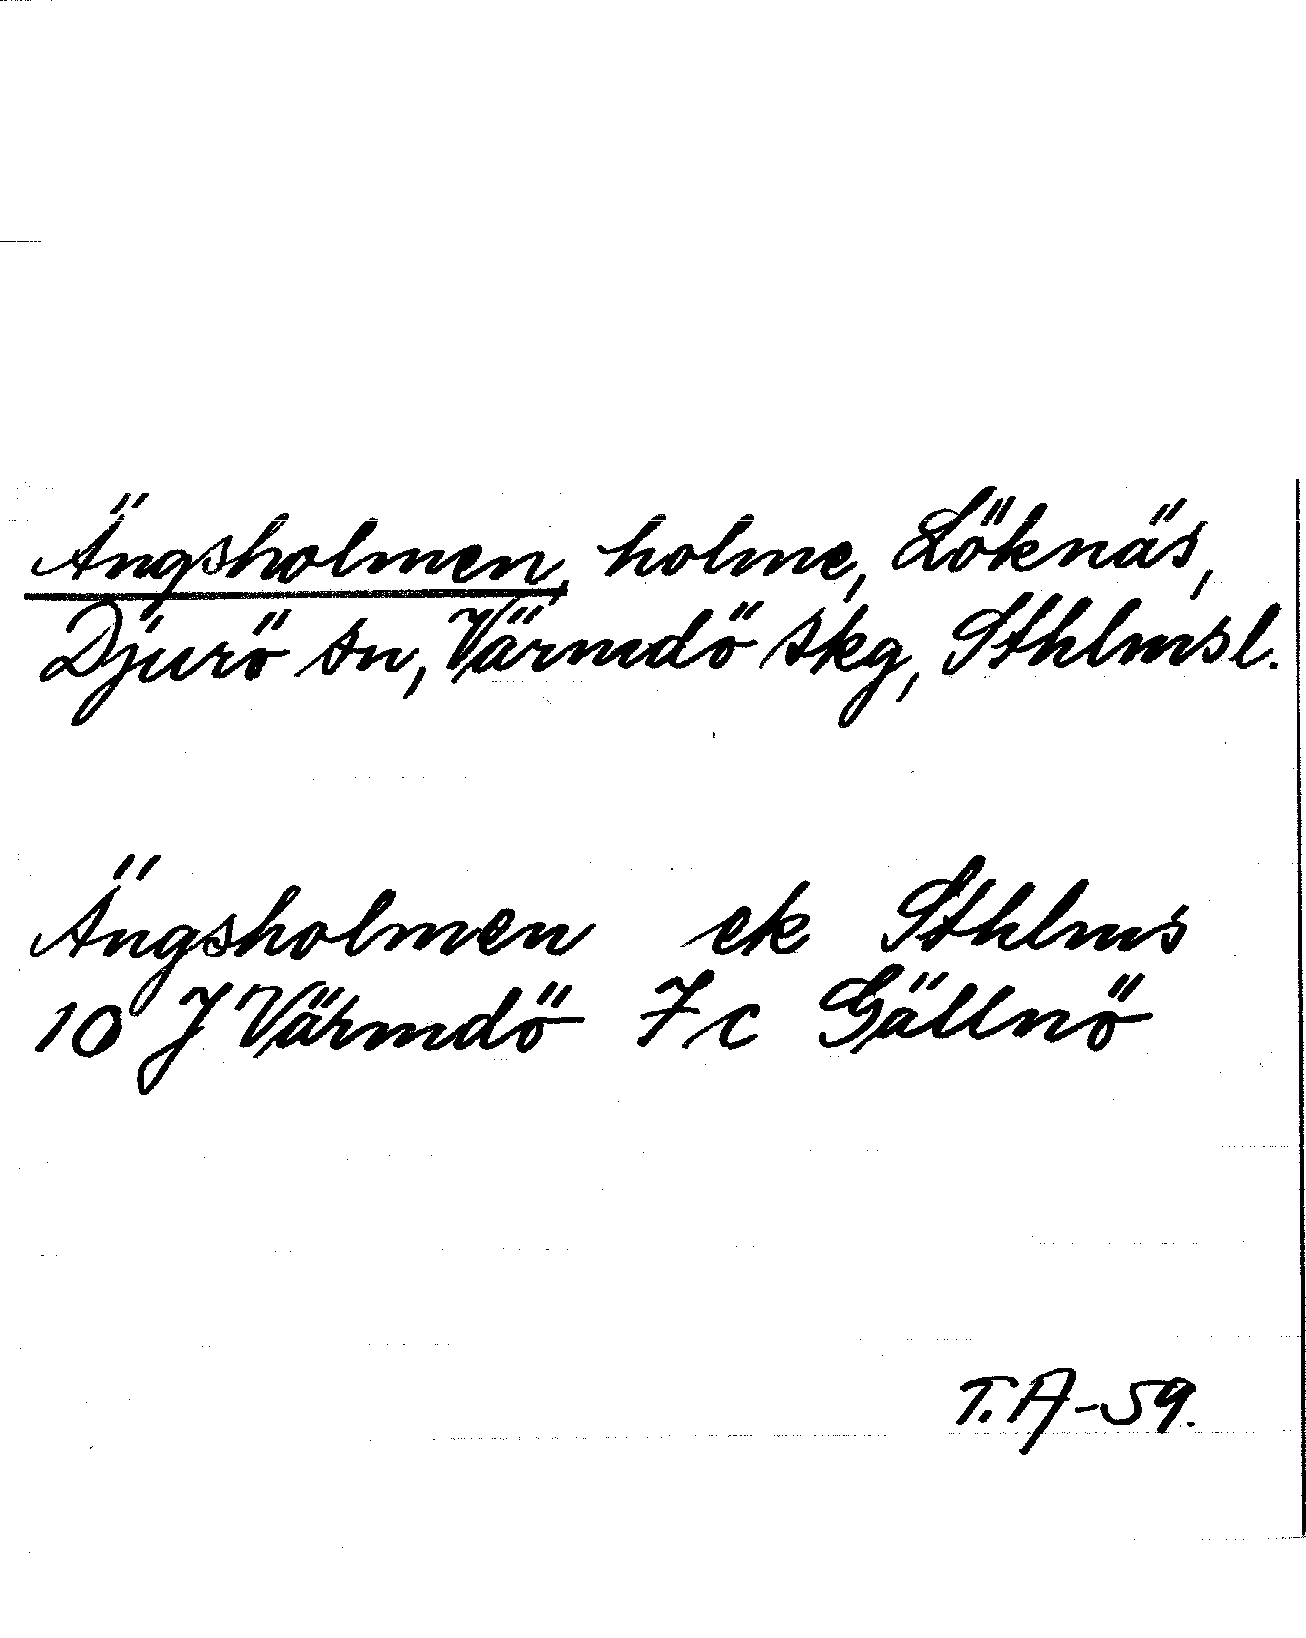 Ängsholmen, holme, Löknäs,
Djurö sn, Värmdö skg, Sthlmsl.
Ängsholmen ek Sthlms
10 J Värmdö 7c Gällnö
T.A-59.